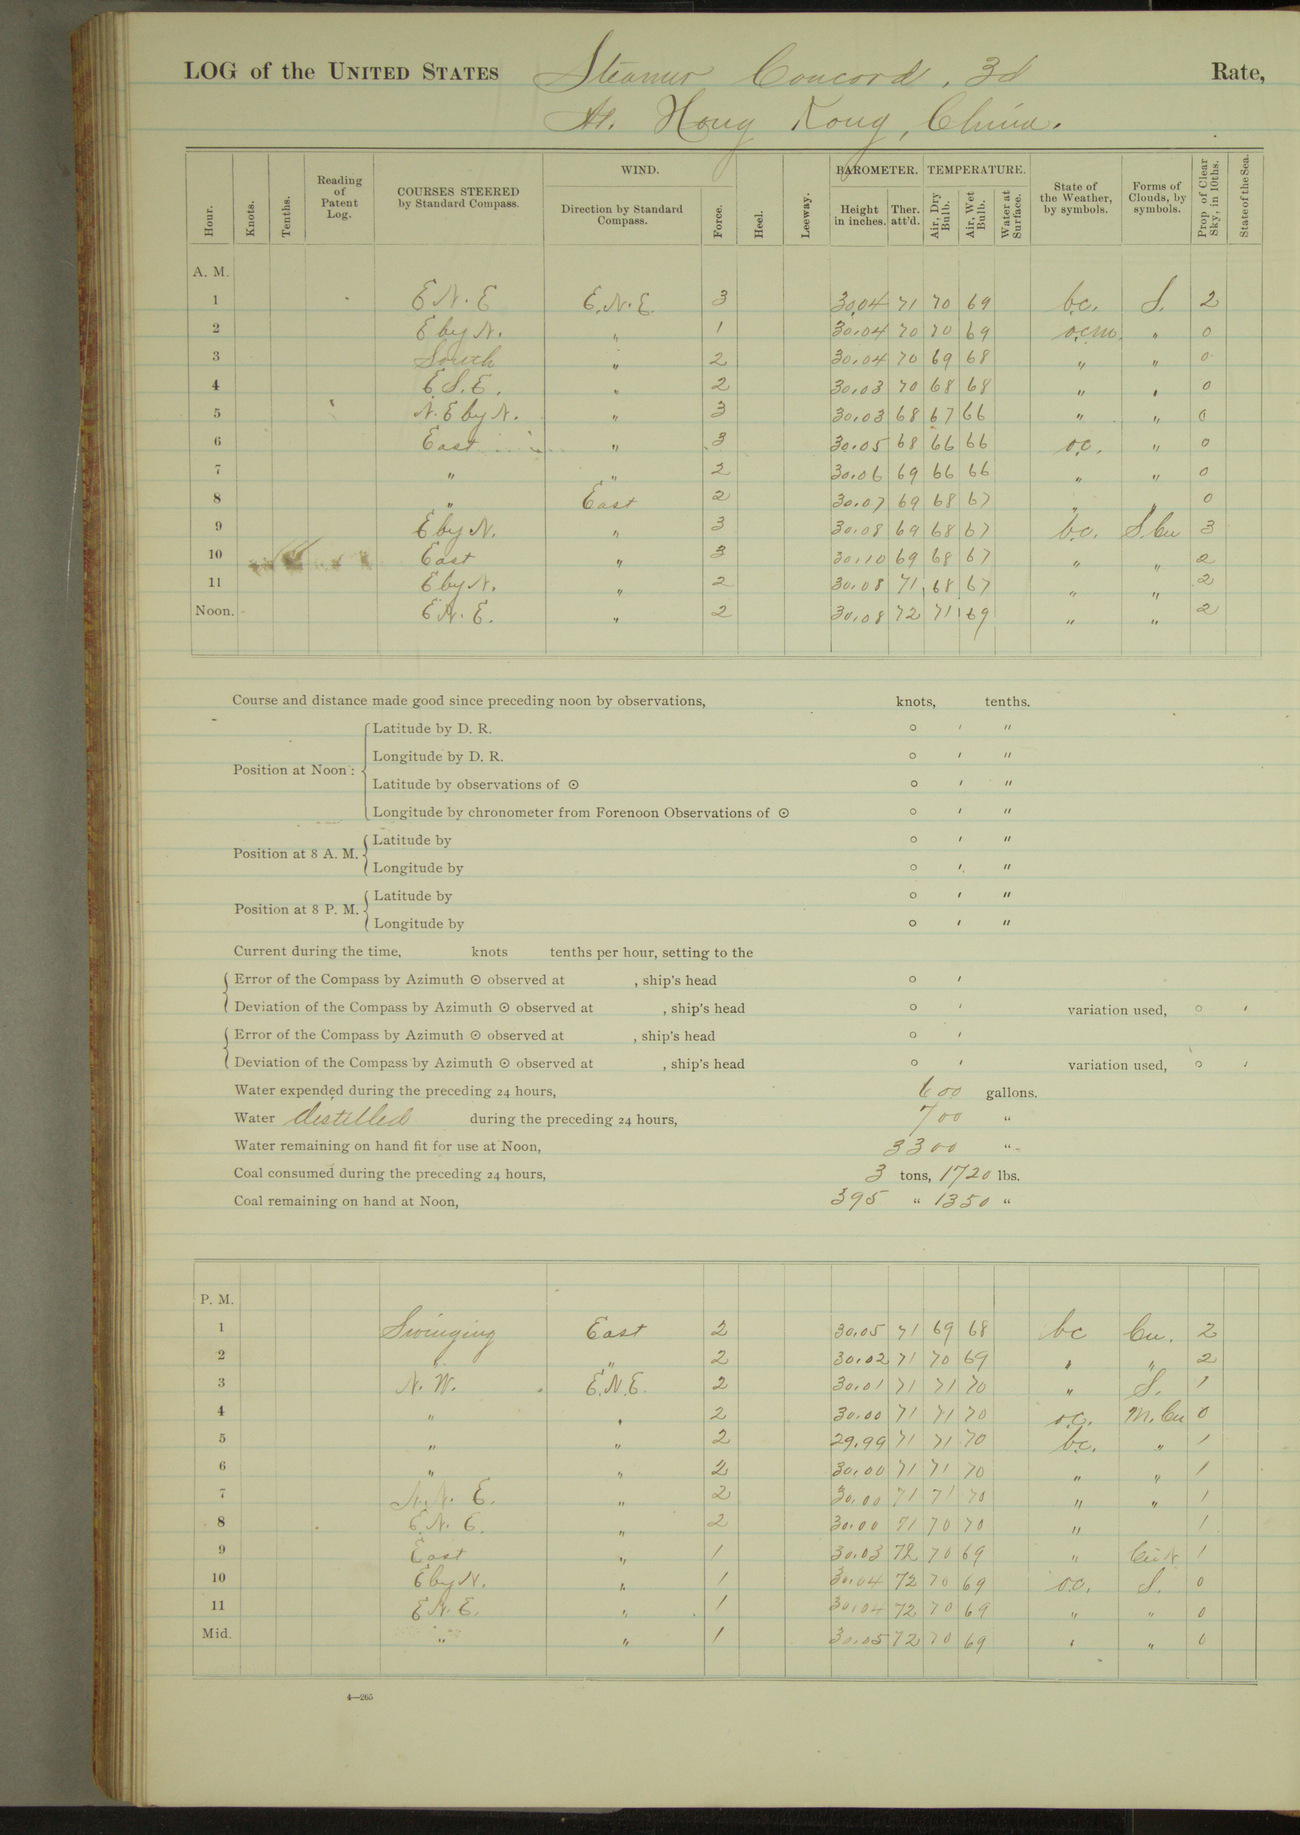 LOG of the UNITED STATES Steamer Concord, 3d Rate,
At. Hong Kong, China.
Hour. Knots. Tenths. Reading of Patent Log. COURSES STEERED by Standard Compass. WIND. Direction by Standard Compass. Force. Heel. Leeway. BAROMETER. Height in inches. Ther. att'd. TEMPERATURE. Air, Dry Bulb. Air, Wet Bulb. Water at Surface. State of the Weather, by symbols. Forms of Clouds, by symbols. Prop. of Clear Sky, in 10ths. State of the Sea.
A. M.
1 E.N.E E.N.E. 3 30.04 71 70 69 b.c. S. 2
2 E by N. " 1 30.04 70 70 69 o.c.m. " 0
3 South " 2 30.04 70 69 68 " " 0
4 E.S.E. " 2 30.03 70 68 68 " " 0
5 N.E by N. " 3 30.03 68 67 66 " " 0
6 East " 3 30.05 68 66 66 o.c. " 0
7 " " 2 30.06 69 66 66 " " 0
8 " East 2 30.07 69 68 67 " " 0
9 E by N. " 3 30.08 69 68 67 b.c. S.Cu 3
10 East " 3 30.10 69 68 67 " " 2
11 E by N. " 2 30.08 71 68 67 " " 2
Noon. E.N.E. " 2 30.08 72 71 69 " " 2
Course and distance made good since preceding noon by observations, knots, tenths.
Position at Noon: Latitude by D. R. ° ′ ″
Longitude by D. R. ° ′ ″
Latitude by observations of ☉ ° ′ ″
Longitude by chronometer from Forenoon Observations of ☉ ° ′ ″
Position at 8 A. M. Latitude by ° ′ ″
Longitude by ° ′ ″
Position at 8 P. M. Latitude by ° ′ ″
Longitude by ° ′ ″
Current during the time, knots tenths per hour, setting to the
Error of the Compass by Azimuth ☉ observed at , ship's head ° ′
Deviation of the Compass by Azimuth ☉ observed at , ship's head ° ′ variation used, ° ′
Error of the Compass by Azimuth ☉ observed at , ship's head ° ′
Deviation of the Compass by Azimuth ☉ observed at , ship's head ° ′ variation used, ° ′
Water expended during the preceding 24 hours, 600 gallons.
Water distilled during the preceding 24 hours, 700 "
Water remaining on hand fit for use at Noon, 3300 "
Coal consumed during the preceding 24 hours, 3 tons, 1720 lbs.
Coal remaining on hand at Noon, 395 " 1350 "
P. M.
1 Swinging East 2 30.05 71 69 68 bc Cu. 2
2 " " 2 30.02 71 70 69 " " 2
3 N.W. E.N.E. 2 30.01 71 71 70 " S. 1
4 " " 2 30.00 71 71 70 o.c. M.Cu 0
5 " " 2 29.99 71 71 70 b.c. " 1
6 " " 2 30.00 71 71 70 " " 1
7 N.N.E. " 2 30.00 71 71 70 " " 1
8 E.N.E. " 2 30.00 71 70 70 " 1
9 East " 1 30.03 72 70 69 " 1
10 E by N. " 1 30.04 72 70 69 o.c. S. 0
11 E.N.E. " 1 30.04 72 70 69 " " 0
Mid. " " 1 30.05 72 70 69 " " 0
4—265